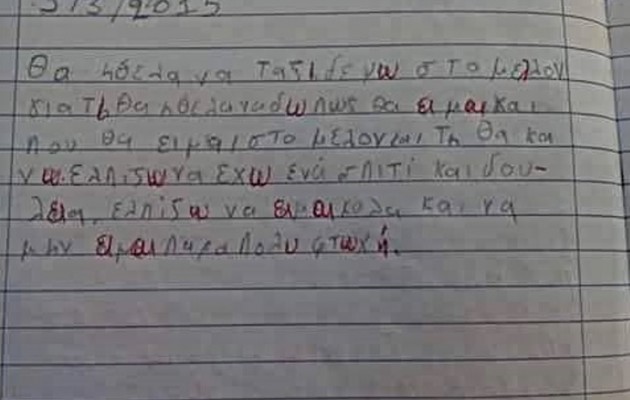 3/3/2015
Θα ηθελα να ταξιδεψω στο μελλον
για τι θα ηθελα να δω πως θα ειμαι και
που θα ειμαι στο μελον και τη θα κα
νω. Ελπιζω να εχω ενα σπιτι και δου-
λεια. ελπιζω να ειμαι κολα και να
μην ειμαι παρα πολυ φτωχή.